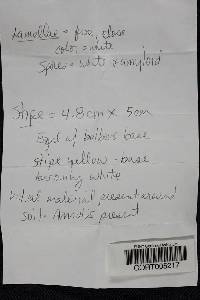 Lamellae = free, close
color = white
Spores = white & amyloid
Stipe = 4.8cm x 5cm
Eqd w/ bulbous base
stipe yellow - base
becoming white
material present around
soil. present
CORT006217